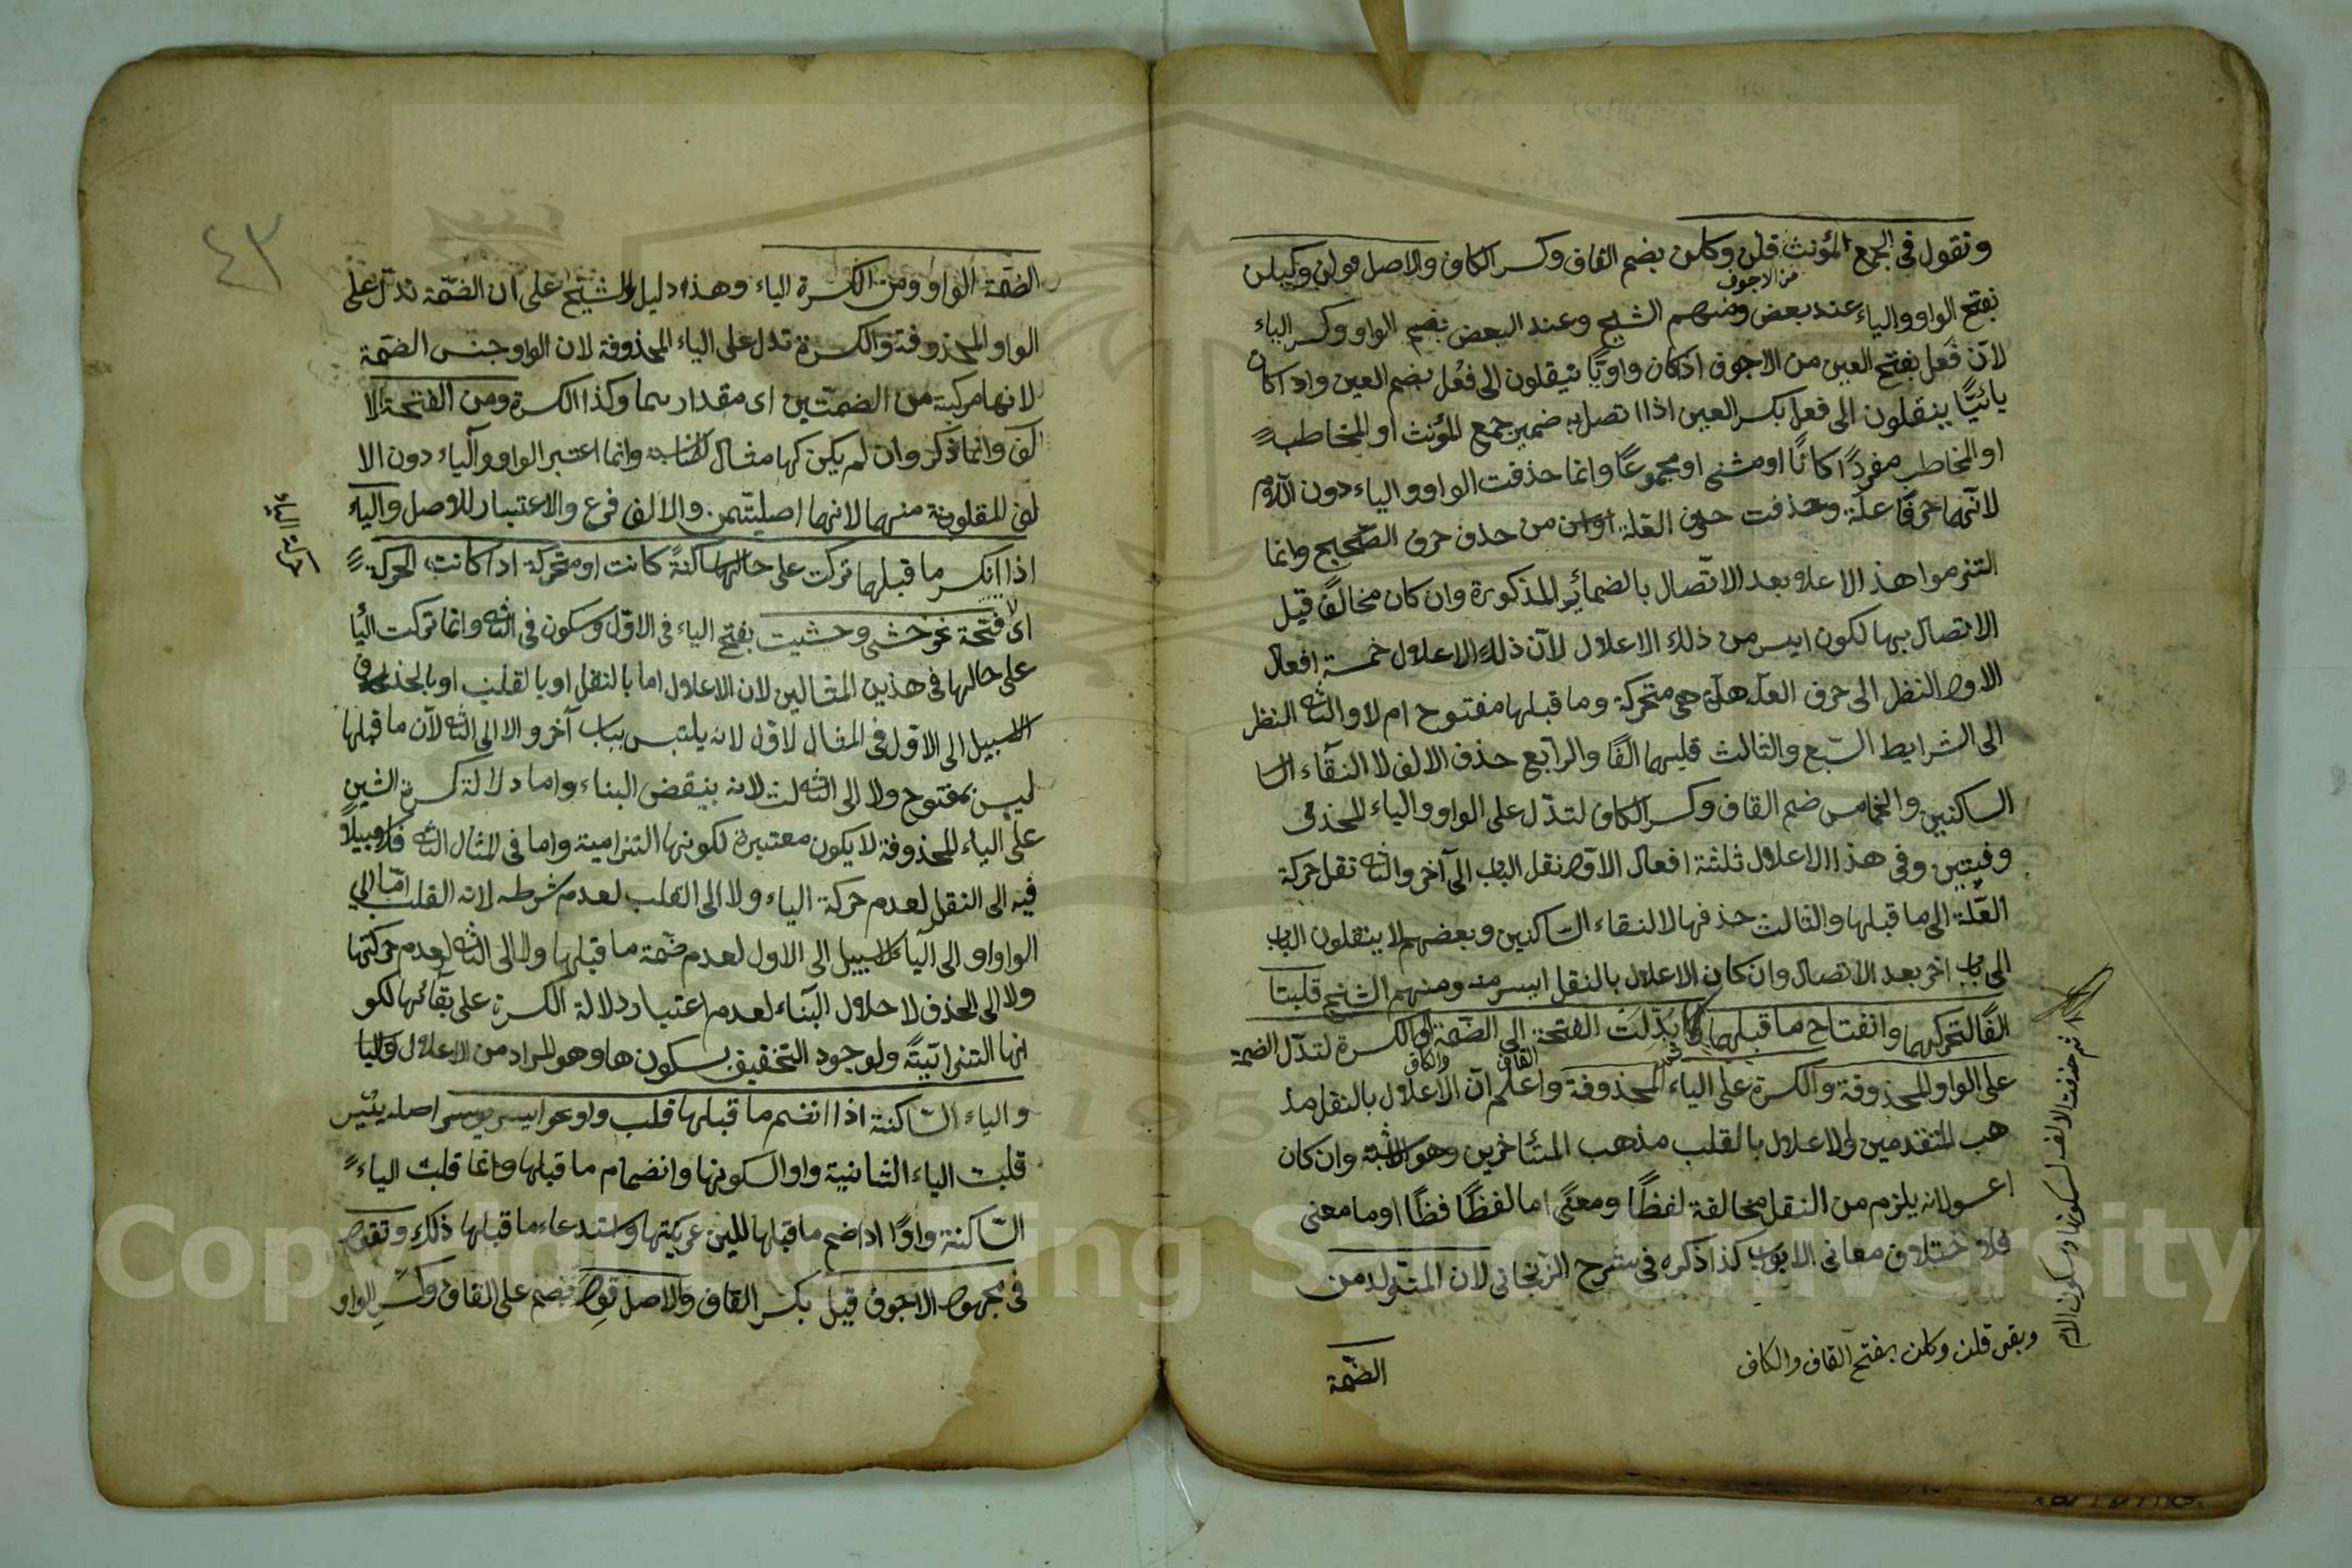 وتقول فى الجمع المؤنث قلن وكلن بضم القاف وكسر الكاف والاصل قولن وكيلن
من الاجوف
بفتح الواو والياء عند بعض ومنهم الشيخ وعند البعض بضم الواو وكسر الياء
لانّ فَعل بفتح العين من الاجوف اذا كان واويًّا ينقلون الى فعُل بضم العين واذا كان
يائيًّا ينقلون الى فعل بكسر العين اذا اتصل به ضمير جمع المؤنث او المخاطبة
او المخاطب مفردًا كانا او مثنى او مجموعًا وانما حذفت الواو والياء دون اللام
لانهما حرفا علة وحذفت حرف العلة اولى من حذف حرف الصحيح وانما
التزموا هذا الاعلال بعد الاتّصال بالضمائر المذكورة وان كان مخالفًا قبل
الاتصال بها لكون ايسر من ذلك الاعلال لانّ ذلك الاعلال خمسة افعال
الاول النظر الى حرف العلة هل هى متحركة وما قبلها مفتوح ام لا والثانى النظر
الى الشرايط السّبع والثالث قلبهما الفًا والرّابع حذف الالف لالتقاء السا
الساكنين والخامس ضم القاف وكسر الكاف لتدلّ على الواو والياء المحذو
وفيتين وفى هذا الاعلال ثلثة افعال الاول نقل الباب الى آخر والثانى نقل حركة
العلّة الى ما قبلها والثالث حذفها لالتقاء السّاكنين وبعضهم لا ينقلون الباب
الى باب اخر بعد الاتصال وان كان الاعلال بالنقل ايسر منه ومنهم الشيخ قلبتا
الفًا لتحركهما وانفتاح ما قبلهما بُدّلت الفتحة الى الضّمة والكسرة لتدّل الضمة
القاف والكاف
على الواو المحذوفة والكسرة على الياء المحذوفة واعلم انّ الاعلال بالنقل مذ
هب المتقدمين والاعلال بالقلب مذهب المتأخرين وان كان
لانه يلزم من النقل مخالفة لفظًا ومعنًى اما لفظًا واما معنى
فلاختلاف معانى الابواب كذا ذكره فى شرح الزّنجانى لان المتولد من
ثم حذفت الالف لسكونها وسكون اللام
وبقى قلن وكلن بفتح القاف والكاف
الضمّة
٤٣
الضمّة الواو ومن الكسرة الياء وهذا دليل الشيخ على ان الضمّة تدلّ على
الواو المحذوفة والكسرة تدل على الياء المحذوفة لان الواو جنس الضمّة
لانها مركبة من الضمّتين اى مقدارهما وكذا الكسرة ومن الفتحة الا
لف وانما ذكر وان لم يكن لها مثال وانما اعتبر الواو والياء دون الا
لف المقلوبة منهما لانهما اصليتين والالف فرع والاعتبار للاصل والياء
اذا انكسر ما قبلها تركت على حالها ساكنةً كانت او متحركة اذا كانت الحركة
اى لا فتحة نحو خشى وخشيت بفتح الياء فى الاوّل وسكون فى الثانى وانما تركت اليا
على حالها فى هذين المثالين لان الاعلال اما بالنقل او بالقلب او بالحذف
لاسبيل الى الاول فى المثال لاول لانه يلتبس بباب آخر ولا الى الثانى لانّ ما قبلها
ليس بمفتوح ولا الى الثالث لانه ينقض البناء واما دلالة كسرة الشين
على الياء المحذوفة لا يكون معتبرة لكونها التزامية واما فى المثال الثانى فلا سبيل
فيه الى النقل لعدم حركة الياء ولا الى القلب لعدم شرطه لانه القلب امّا الى
الواو او الى الياء لا سبيل الى الاول لعدم ضمّة ما قبلها ولا الى الثانى لعدم حركتها
ولا الى الحذف لاحلال البناء لعدم اعتبار دلالة الكسرة على بقائها لكو
نها التزاميّة ولوجود التخفيف بسكونها وهو المراد من الاعلال
والياء السّاكنة اذا انضم ما قبلها قلبت واو نحو ايسر يوسر اصله ييسر
قلبت الياء الثانية واوا لسكونها وانضمام ما قبلها وانما قلبت الياء
السّاكنة واوًا اذا ضم ما قبلها للين عريكتها واستدعاء ما قبلها ذلك وتقول
فى مجهول الاجوف قيل بكسر القاف والاصل قول فضم على القاف وكسر الواو